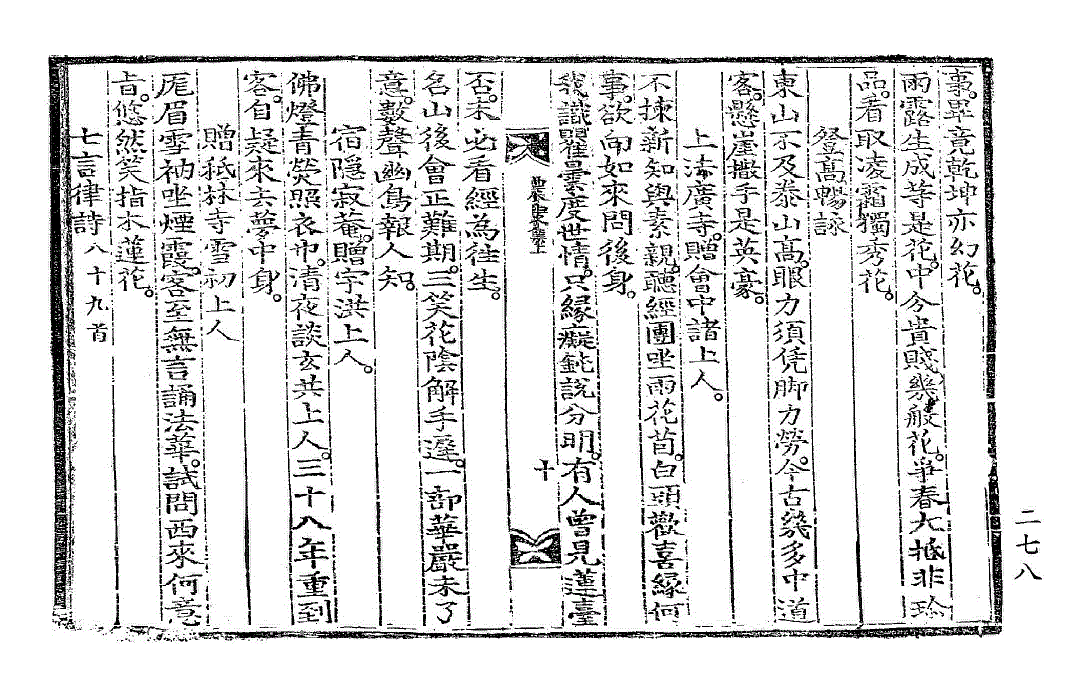 事。畢竟乾坤亦幻花。
雨露生成等是花。中分貴賤幾般花。爭春大抵非珍
品。看取凌霜獨秀花。
登高暢詠
東山不及泰山高。眼力須凭脚力勞。今古幾多中道
客。懸崖撒手是英豪。
上法廣寺。贈會中諸上人。
不揀新知與素親。聽經團坐雨花茵。白頭歡喜緣何
事。欲向如來問後身。
我識瞿曇度世情。只緣癡鈍說分明。有人曾見蓮臺
十
否。未必看經爲往生。
名山後會正難期。三笑花陰解手遲。一部華嚴未了
意。數聲幽鳥報人知。
宿隱寂菴。贈宇洪上人。
佛燈青熒照衣巾。清夜談玄共上人。三十八年重到
客。自疑來去夢中身。
贈祗林寺雪初上人
厖眉雪衲坐煙霞。客至無言誦法華。試問西來何意
旨。悠然笑指木蓮花。
七言律詩 八十九首
二七八